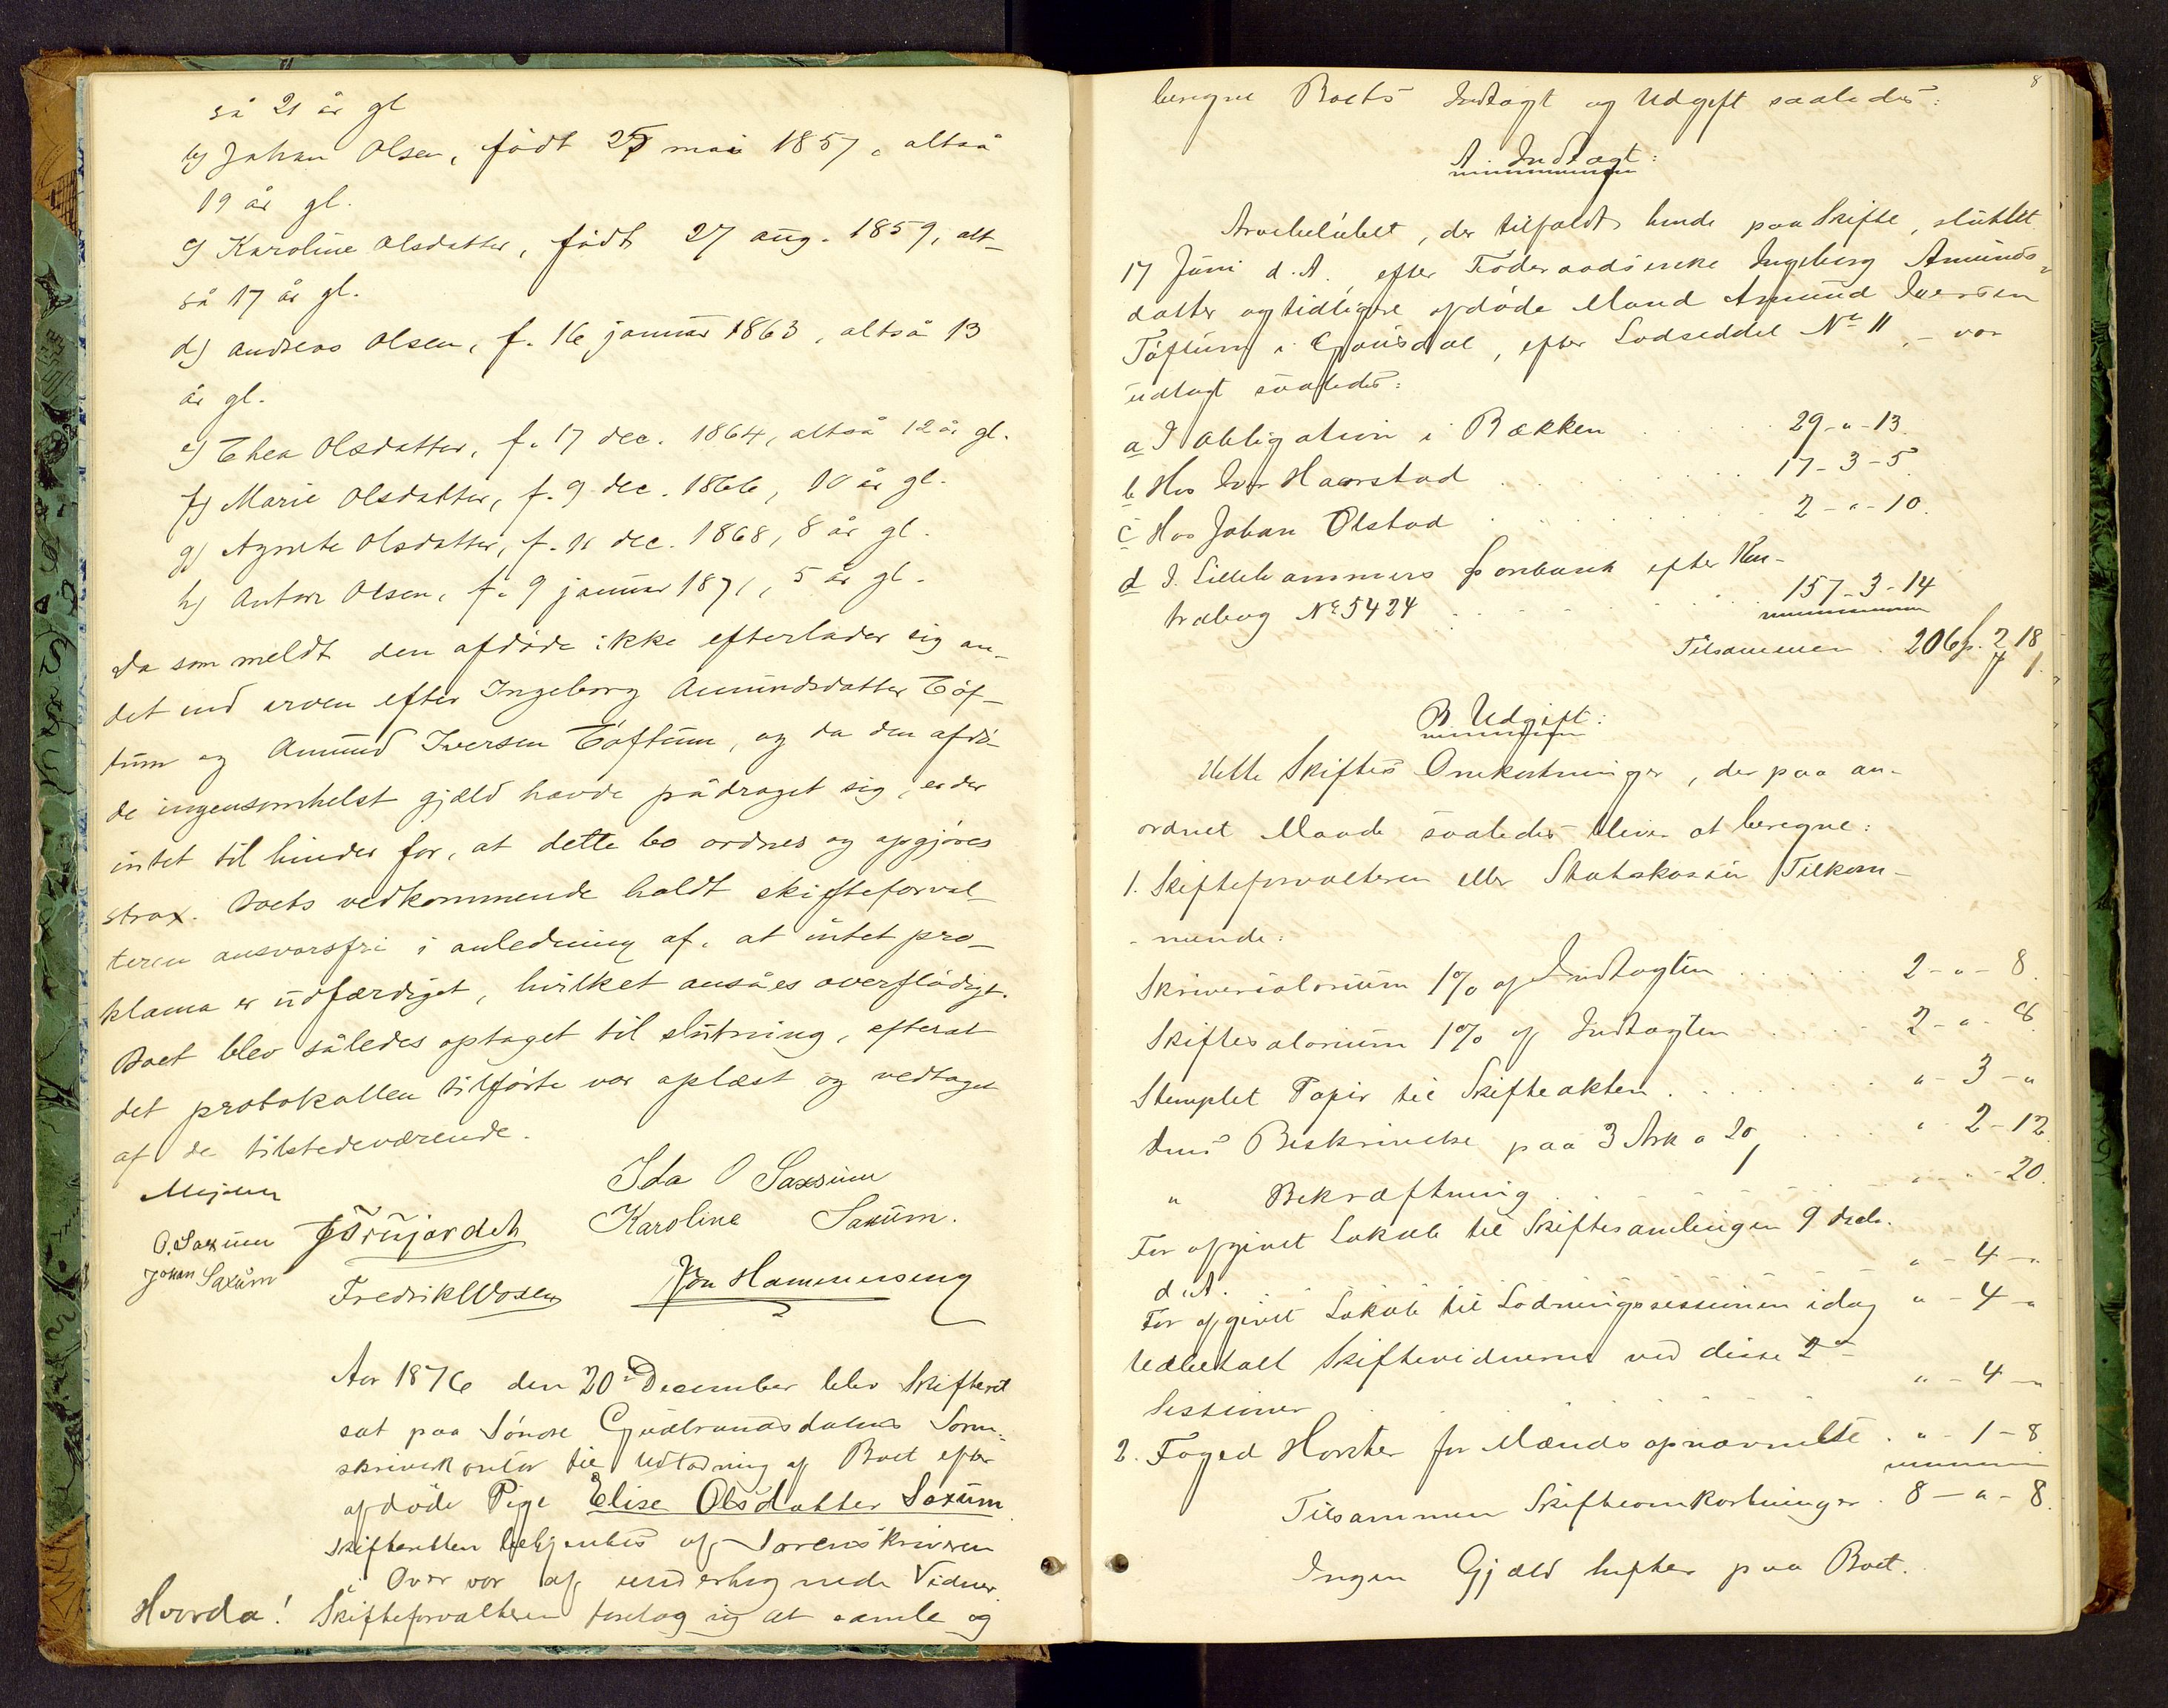 så 21 år gl
b) Johan Olsen, født 25 mai 1857, altså
19 år gl.
c) Karoline Olsdatter, født 27 aug. 1859, alt-
så 17 år gl.
d) Andreas Olsen, f. 16 januar 1863, altså 13
år gl.
e) Thea Olsdatter, f. 17 dec. 1864, altså 12 år gl.
f) Marie Olsdatter, f. 9 dec. 1866, 10 år gl.
g) Agnete Olsdatter, f. 11 dec. 1868, 8 år gl.
h) Anton Olsen, f. 9 januar 1871, 5 år gl.
Da som meldt den afdøde ikke efterlader sig an-
det end arven efter Ingeborg Amundsdatter Tøf-
tum og Amund Iversen Tøftum, og da den afdø-
de ingensomhelst gjæld havde pådraget sig, er der
intet til hinder for, at dette bo ordnes og opgjøres
strax. Boets vedkommende holdt skifteforval-
teren ansvarsfri i anledning af, at intet pro-
klama er udfærdiget, hvilket ansåes overflødigt.
Boet blev således optaget til slutning, efterat
det protokollen tilførte var oplæst og vedtaget
af de tilstedeværende.
Mejdell
Ida O Saxsum
O. Saxum
Karoline Saxum.
Johan Saxum
Fredrik Wosen
Jon Hammerseng
Aar 1876 den 20de December blev Skifteret
sat paa Søndre Gudbrandsdalens Soren-
skriverkontor til Udlodning af Boet efter
afdøde Pige Elise Olsdatter Saxum
Skifteretten betjentes af Sorenskriveren
i Over vær af undertegnede Vidner.
Hvorda! Skifteforvalteren foretog sig at samle og
8
beregne Boets Indtægt og Udgift saaledes:
A. Indtægt:
Arvebeløbet, der tilfaldt hende paa Skifte, sluttet
17 Juni d. A. efter Føderaadsenke Ingeborg Amunds-
datter og tidligere afdøde Mand Amund Iversen
Tøftum i Gausdal, efter Lodseddel No 11, - var
udlagt saaledes:
a I Obligation i Bækken . . . 29 - " - 13.
b Hos Iver Haarstad . . . 17 - 3 - 5.
c Hos Johan Olstad . . . 2 - " - 10.
d I Lillehammers Sparebank efter Kon-
trabog No 5424 . . . 157 - 3 - 14
Tilsammen 206 2 18
B. Udgift:
Dette Skiftes Omkostninger, der paa an-
ordnet Maade saaledes bliver at beregne:
1. Skifteforvalteren eller Statskassen Tilkom-
- mende:
Skriversalarium 1% af Indtægten . . . 2 - " - 8.
Skiftesalarium 1% af Indtægten . . . 2 - " - 8.
Stemplet Papir til Skifteakten . . . " - 3 - "
dens Beskrivelse paa 3 Ark a 20 . . . " 2 - 12.
" Bekræftning . . . " - " - 20.
For afgivet Lokale til Skiftesamlingen 9 dsds.
d. A. " - 4 - "
For afgivet Lokale til Lodningssessionen idag " - 4 - "
Udbetalt Skiftevidnerne ved disse 2de
Sessioner . . . " - 4 - "
2. Foged Horster for Mænds opnævnelse . " - 1 - 8
Tilsammen Skifteomkostninger . 8 - " - 8.
Ingen Gjæld hefter paa Boet.